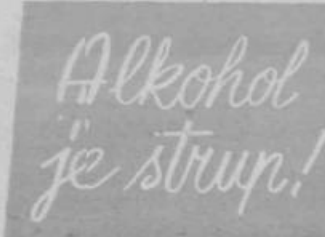 Alkohol
je strup!